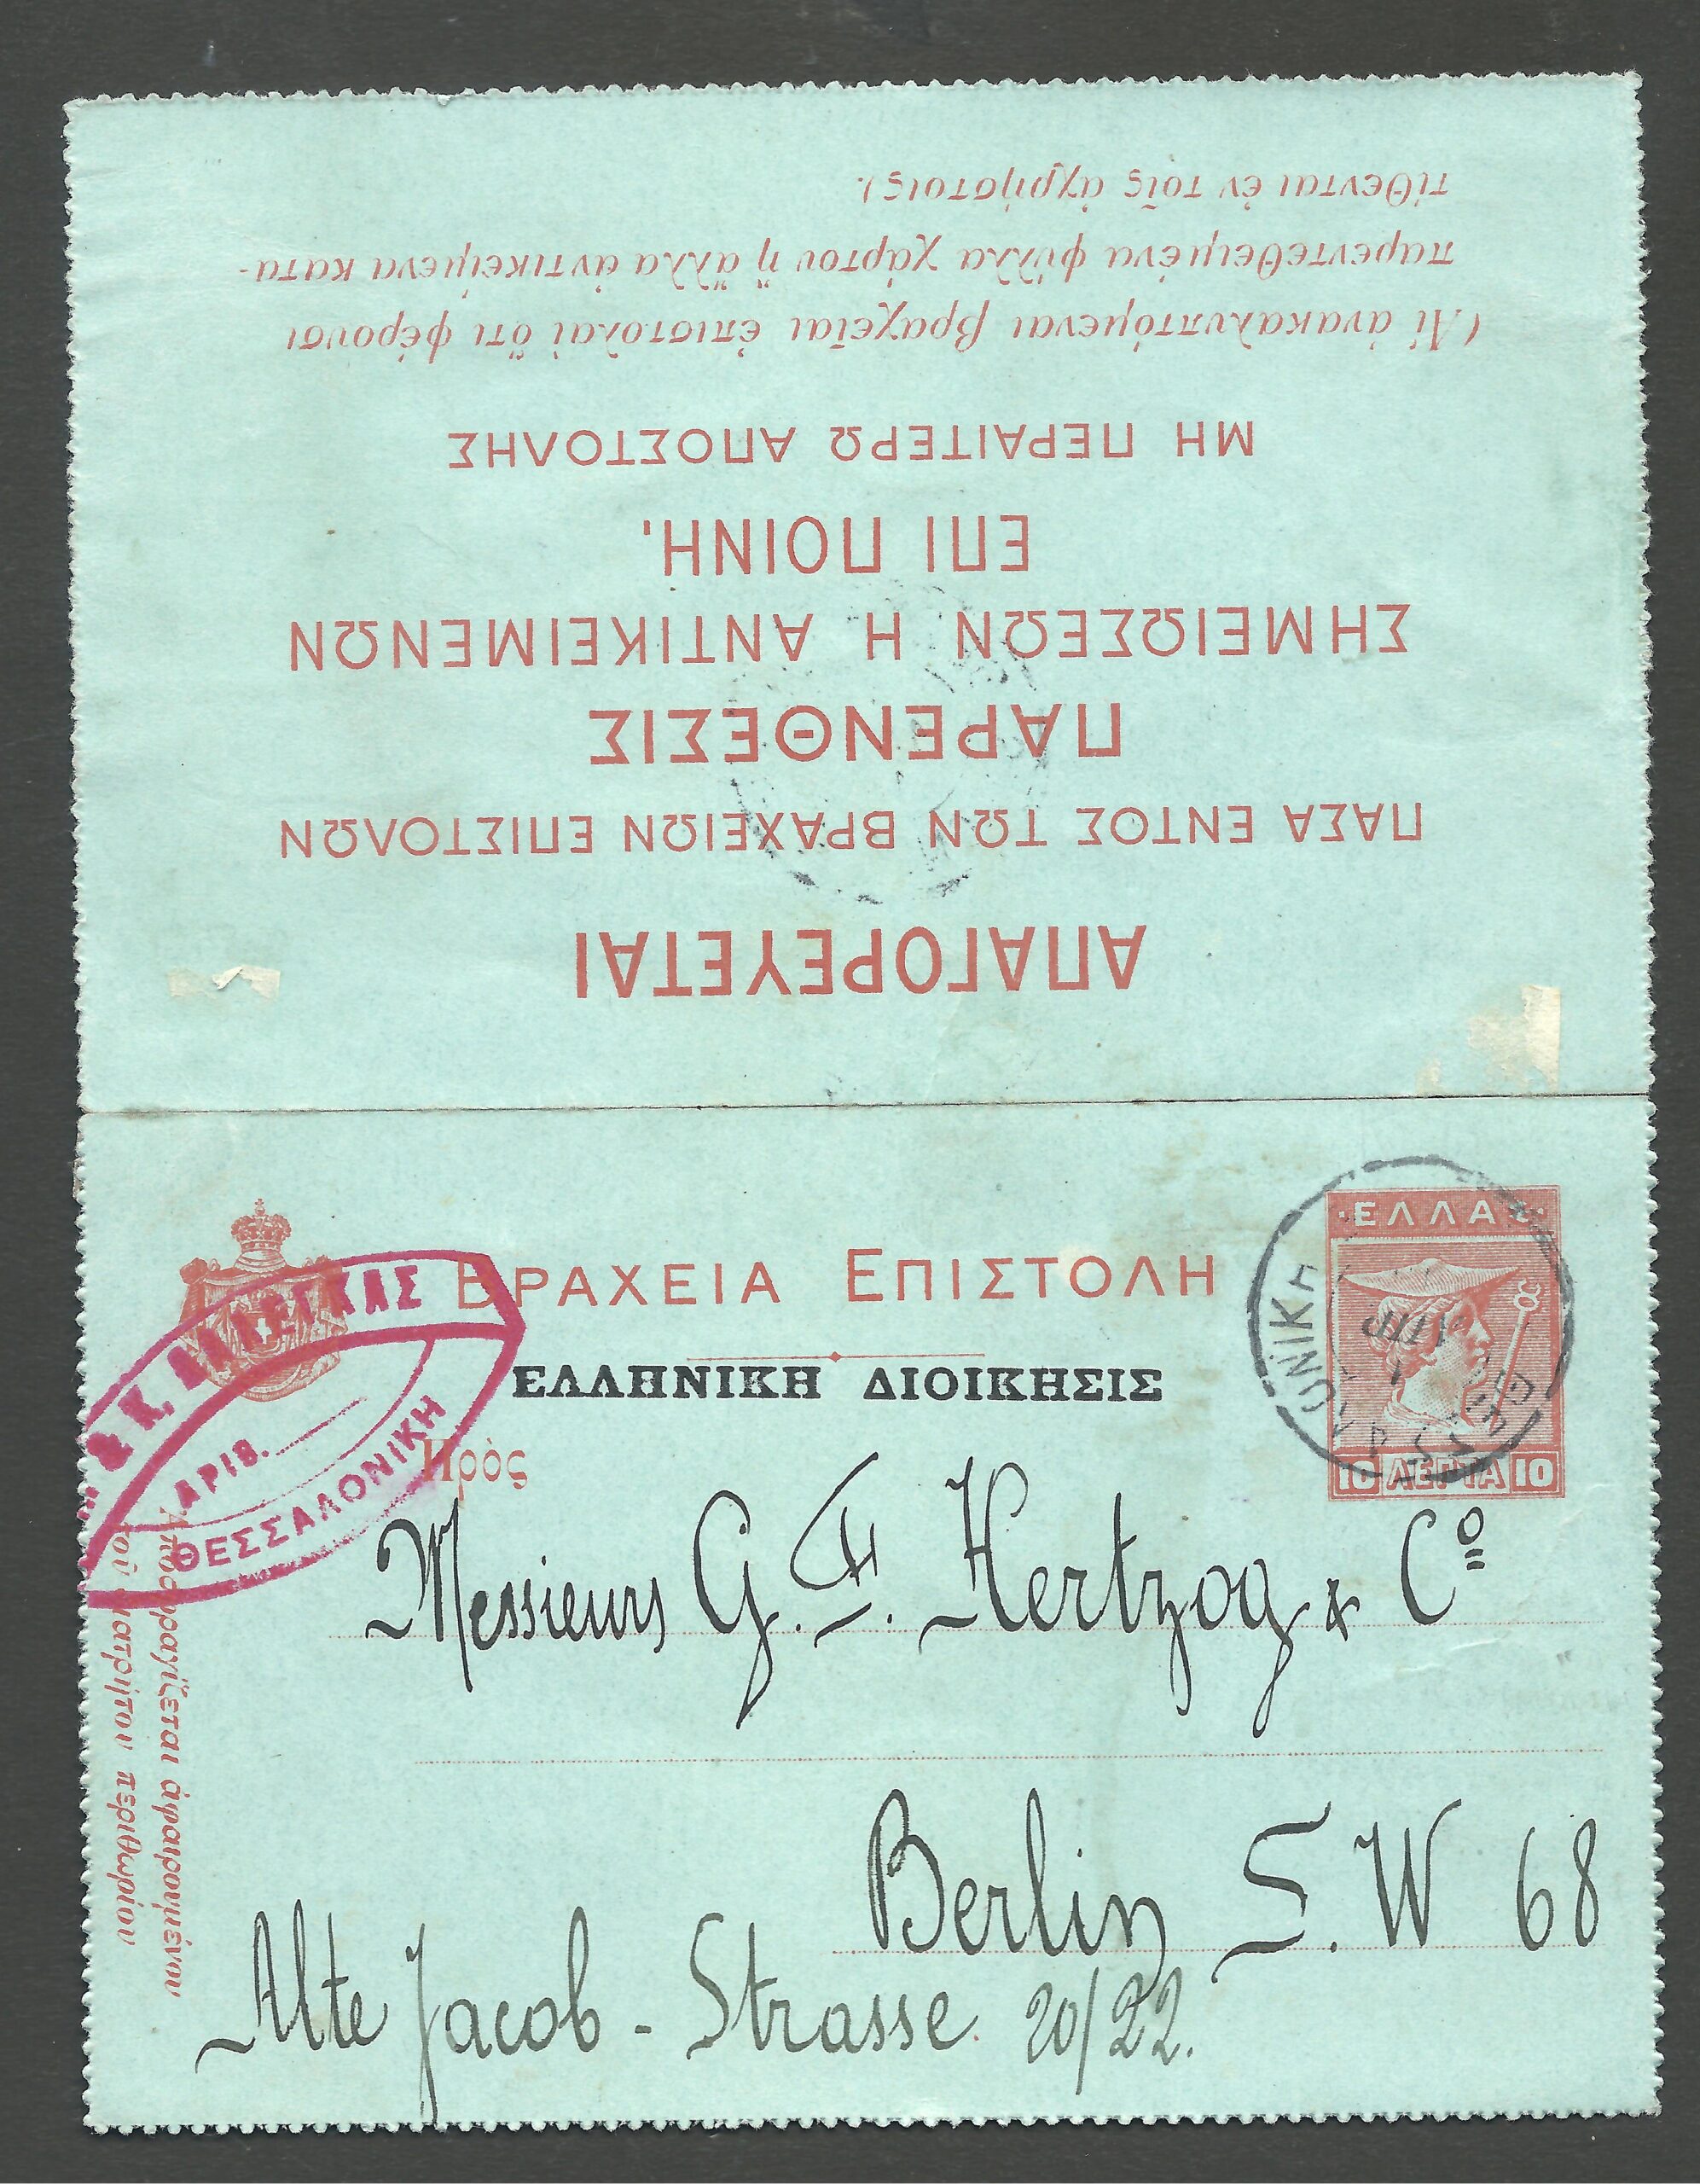 ΑΠΑΓΟΡΕΥΕΤΑΙ
ΠΑΣΑ ΕΝΤΟΣ ΤΩΝ ΒΡΑΧΕΙΩΝ ΕΠΙΣΤΟΛΩΝ
ΠΑΡΕΝΘΕΣΙΣ
ΣΗΜΕΙΩΣΕΩΝ Η ΑΝΤΙΚΕΙΜΕΝΩΝ
ΕΠΙ ΠΟΙΝΗ.
ΜΗ ΠΕΡΑΙΤΕΡΩ ΑΠΟΣΤΟΛΗΣ
(Αἱ ἀνακαλυπτόμεναι βραχεῖαι ἐπιστολαὶ ὅτι φέρουσι
παρεντεθειμένα φύλλα χάρτου ἢ ἄλλα ἀντικείμενα κατα-
τίθενται ἐν τοῖς ἀχρήστοις).
ΒΡΑΧΕΙΑ ΕΠΙΣΤΟΛΗ
ΕΛΛΗΝΙΚΗ ΔΙΟΙΚΗΣΙΣ
·ΕΛΛΑΣ·
10 ΛΕΠΤΑ 10
& Κ.
ΑΡΙΘ.
ΘΕΣΣΑΛΟΝΙΚΗ
Πρὸς
Messieurs G. F. Hertzog & Cº
Berlin S. W 68
Alte Jacob - Strasse 20/22.
Ἀποσφραγίζεται ἀφαιρουμένου
τοῦ διατρήτου περιθωρίου